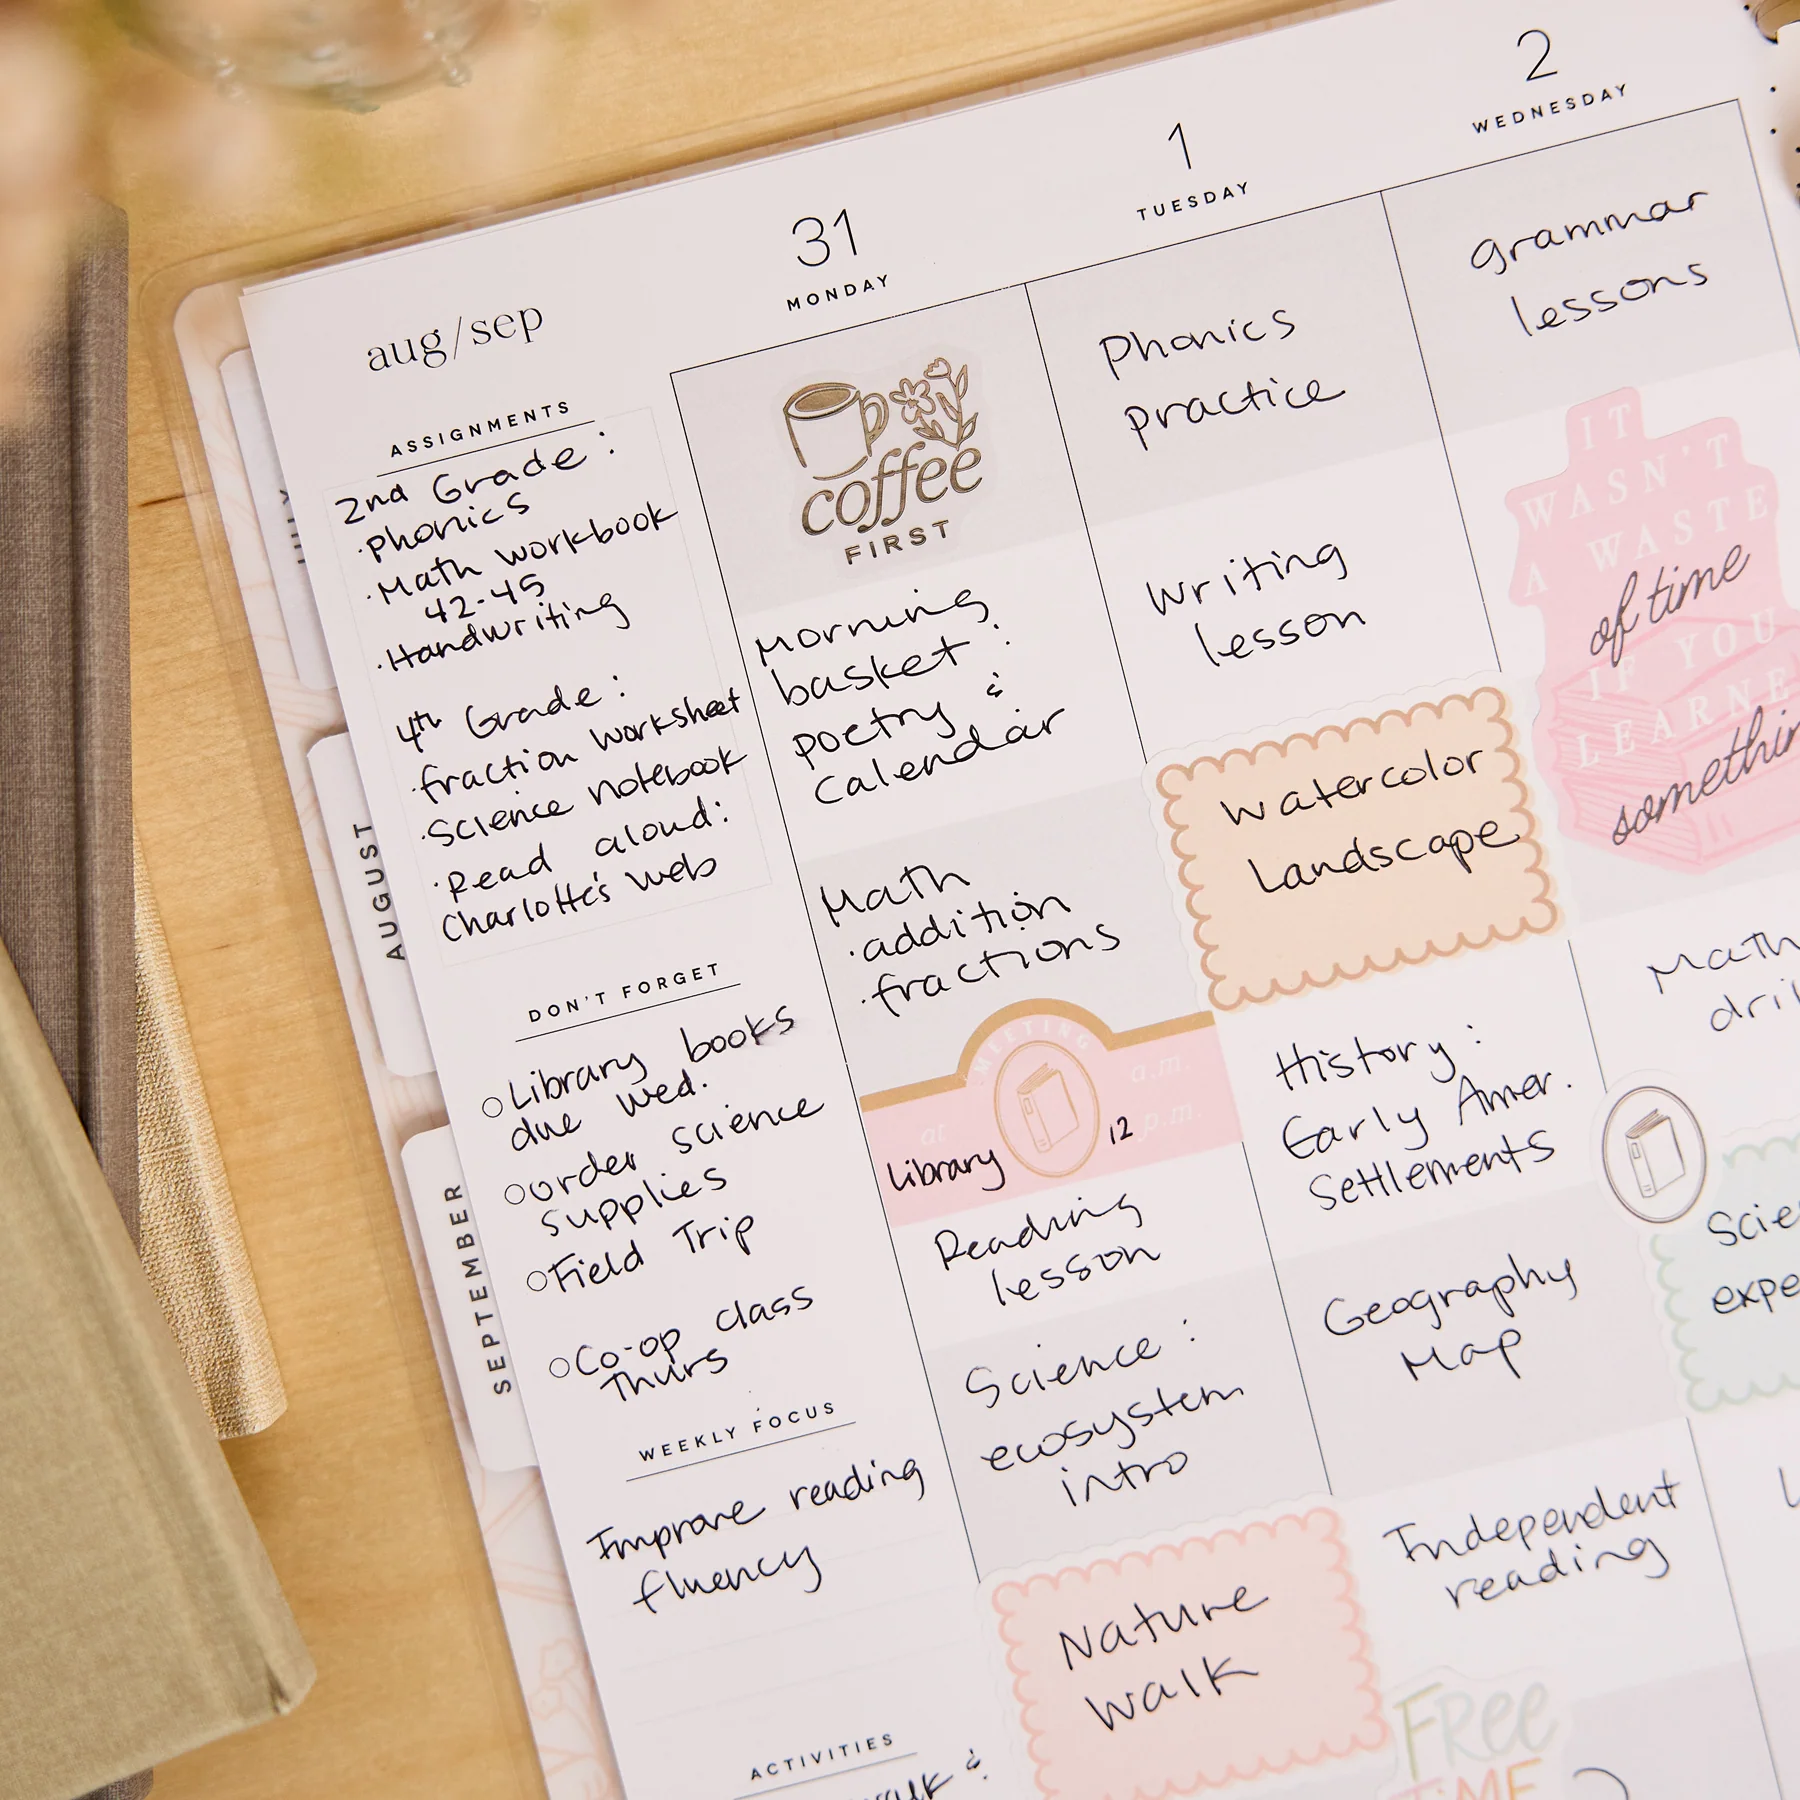 aug/sep
ASSIGNMENTS
2nd Grade:
·Phonics
·Math workbook
42-45
·Handwriting
4th Grade:
·fraction worksheet
·Science notebook
·Read aloud:
Charlotte's Web
DON'T FORGET
Library books
due Wed.
order science
supplies
Field Trip
Co-op class
Thurs
WEEKLY FOCUS
Improve reading
fluency
ACTIVITIES
JULY
AUGUST
SEPTEMBER
31
MONDAY
coffee
FIRST
Morning
basket:
poetry &
Calendar
Math
·addition
·fractions
MEETING
at
a.m.
p.m.
Library 12
Reading
lesson
Science:
ecosystem
intro
Nature
Walk
1
TUESDAY
Phonics
practice
Writing
lesson
Watercolor
Landscape
History:
Early Amer.
Settlements
Geography
Map
Independent
reading
FREE
TIME
2
WEDNESDAY
grammar
lessons
IT
WASN'T
A WASTE
of time
IF YOU
Math